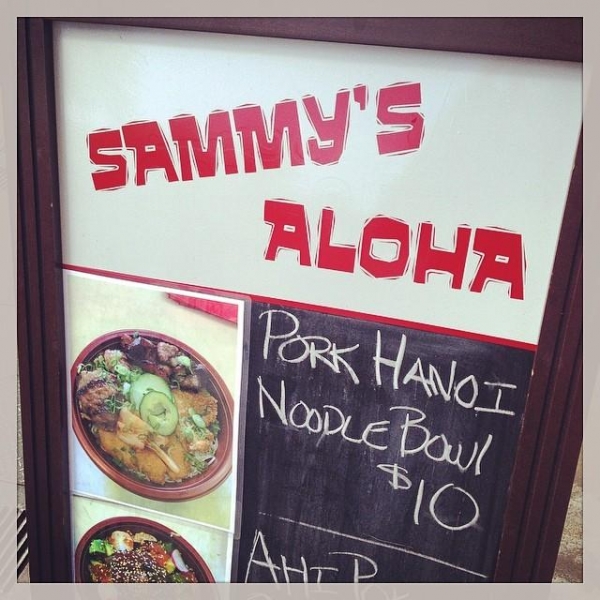 SAMMY'S
ALOHA
PORK HANOI
NOODLE BOWL
$10
AHI